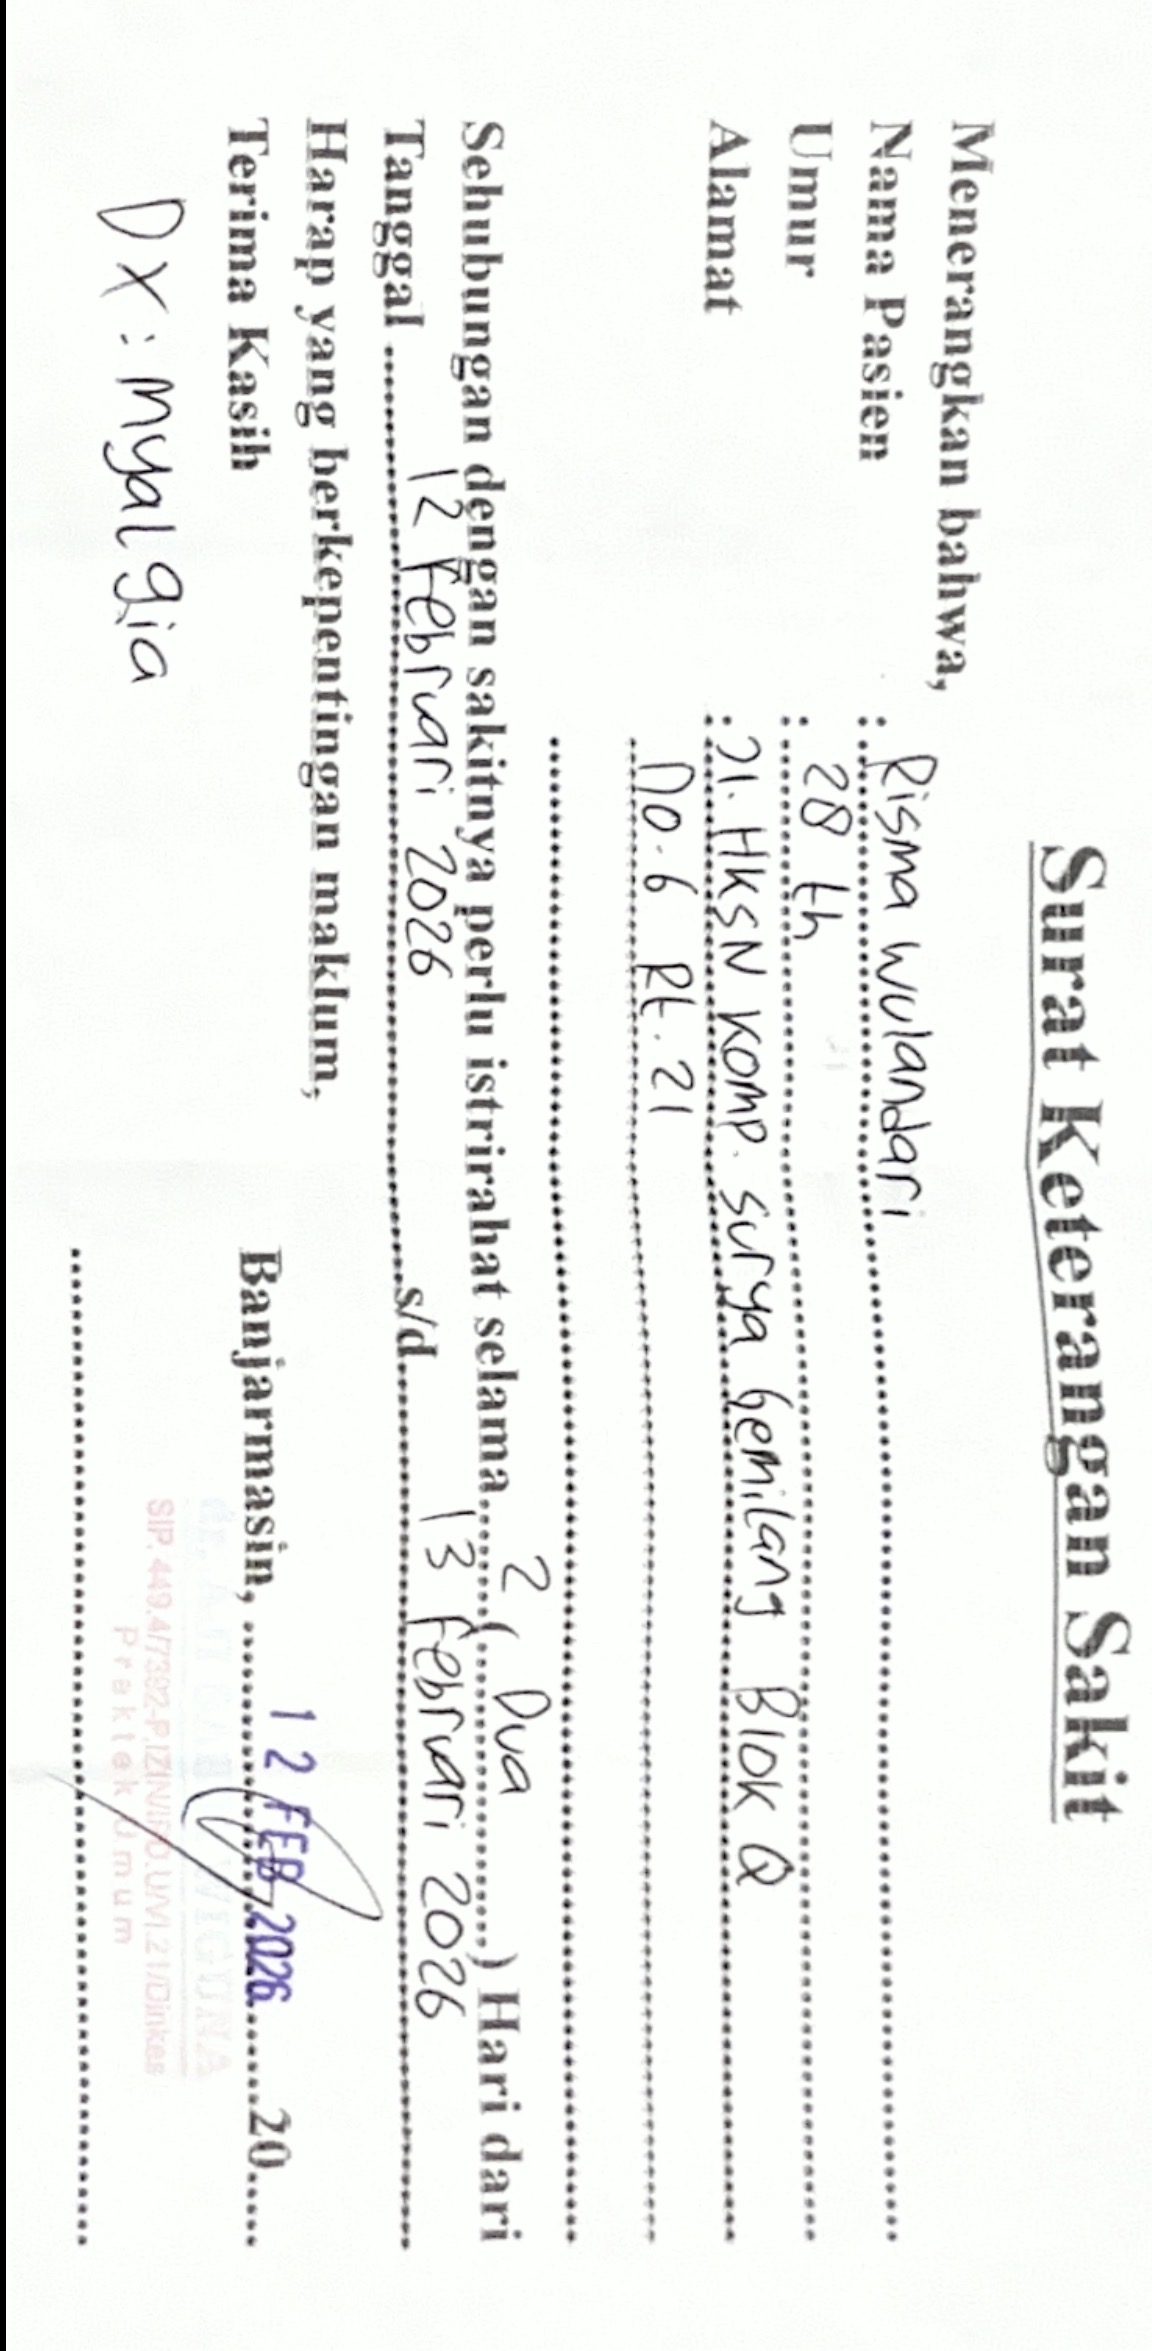 Surat Keterangan Sakit
Menerangkan bahwa,
Nama Pasien : Risma Wulandari
Umur : 28 th
Alamat : Jl. HKSN Komp. Surya Gemilang Blok Q
No. 6 Rt. 21
Sehubungan dengan sakitnya perlu istrirahat selama 2 ( Dua ) Hari dari
Tanggal 12 Februari 2026 s/d 13 Februari 2026
Harap yang berkepentingan maklum,
Terima Kasih
Banjarmasin, 12 FEB 2026 20
DX : Myalgia
Praktek Umum